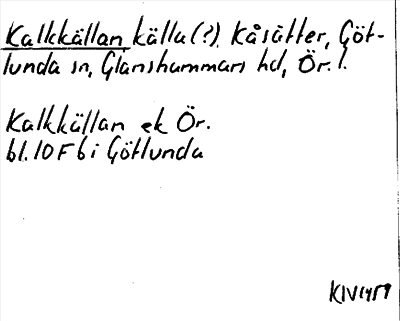 Kalkkällan källa (?), Kåsätter, Göt-
lunda sn, Glanshammars hd, Ör. l.
Kalkkällan ek Ör.
bl. 10 F 6 i Götlunda